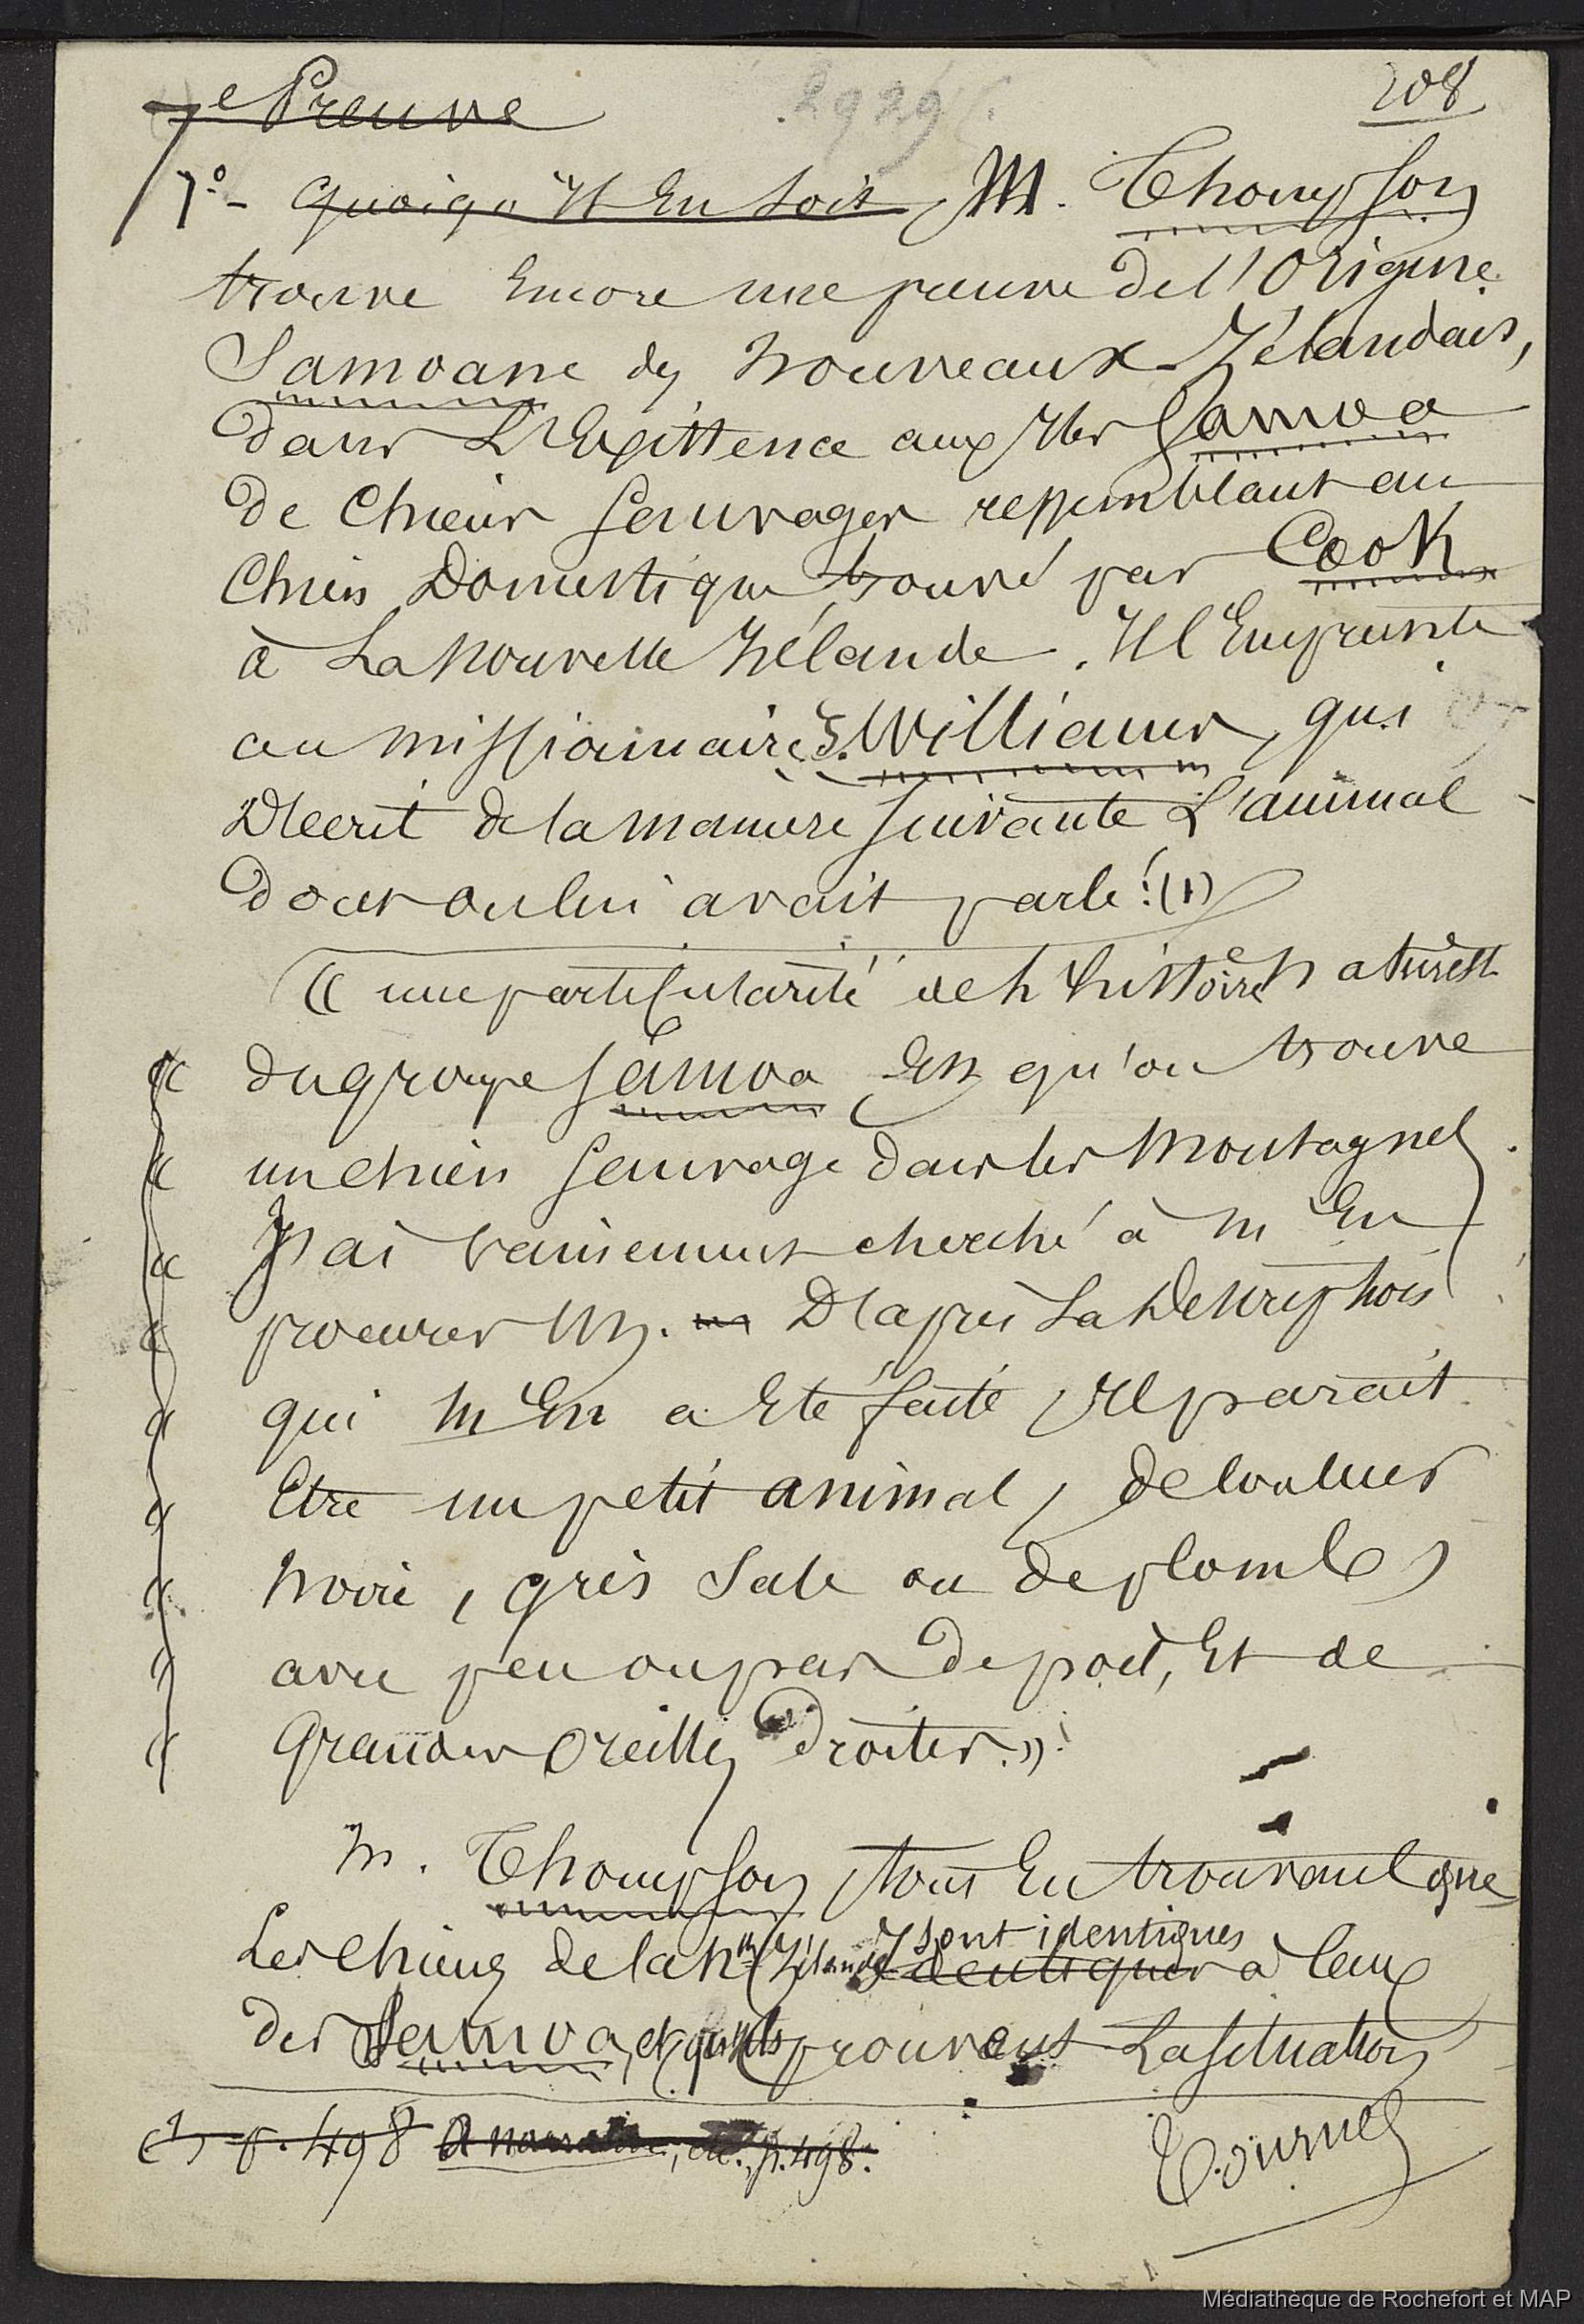 208
2929
7e Preuve
7°- Quoiqu'il En soit, M. Thompson
trouve Encore une preuve de l'Origine
Samoane des nouveaux-Zélandais,
dans L'Existence aux Iles Samoa
de Chiens sauvages ressemblant au
Chien Domestique trouvé par Cook
à La nouvelle Zélande. Il l'Emprunte
au missionnaire J. Williams, qui
Décrit de la manière suivante L'animal
dont on lui avait parlé: (1)
« une particularité de l'histoire naturelle
« du groupe Samoa Est qu'on trouve
« un chien sauvage dans les montagnes
« J'ai vainement cherché à m'En
« procurer un. un D'après La Description
« qui m'En a Eté faite, Il parait
« Etre un petit animal, de couleur
« noire, gris sale ou de plomb,
« avec peu ou pas de poil, Et de
« Grandes Oreilles droites. »
M. Thompson, tout En trouvant que
Les chiens de la Nlle Zélande sont identiques identiques à Ceux
des Samoa, et qu'ils prouvent La situation
(1) p. 498 A narrative, etc., p. 498.
Tournez
Médiathèque de Rochefort et MAP